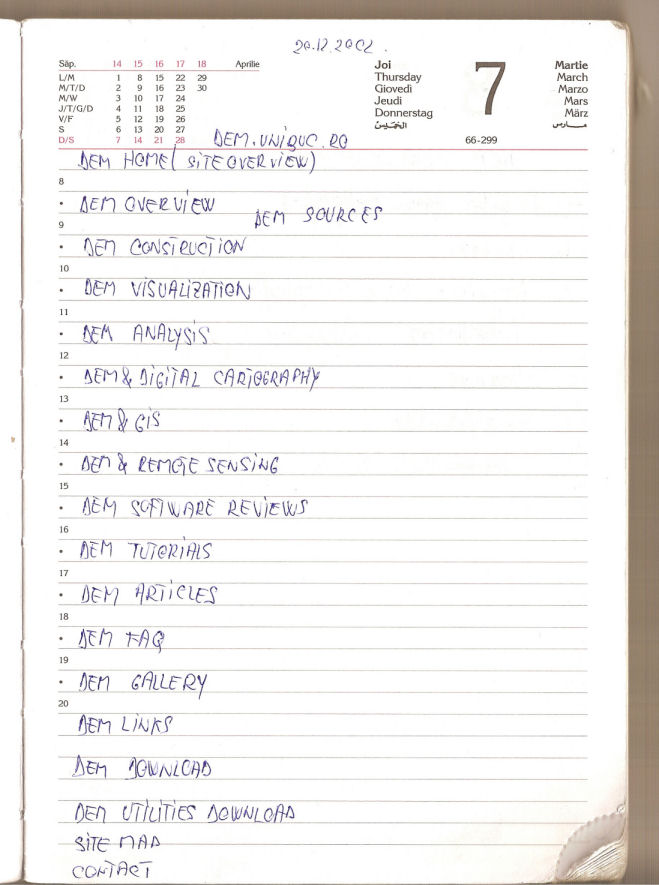 20.12.2002.
Săp. 14 15 16 17 18 Aprilie
L/M 1 8 15 22 29
M/T/D 2 9 16 23 30
M/W 3 10 17 24
J/T/G/D 4 11 18 25
V/F 5 12 19 26
S 6 13 20 27
D/S 7 14 21 28
Joi
Thursday
Giovedì
Jeudi
Donnerstag
الخميس
7
Martie
March
Marzo
Mars
März
مارس
66-299
DEM.UNIQUE.RO
DEM HOME (SITE OVERVIEW)
8
• DEM OVERVIEW DEM SOURCES
9
• DEM CONSTRUCTION
10
• DEM VISUALIZATION
11
• DEM ANALYSIS
12
• DEM & DIGITAL CARTOGRAPHY
13
• DEM & GIS
14
• DEM & REMOTE SENSING
15
• DEM SOFTWARE REVIEWS
16
• DEM TUTORIALS
17
• DEM ARTICLES
18
• DEM FAQ
19
• DEM GALLERY
20
DEM LINKS
DEM DOWNLOAD
DEM UTILITIES DOWNLOAD
SITE MAP
CONTACT